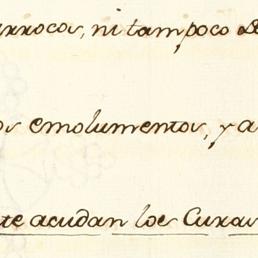 arrocos, ni tampoco de
os emolumentos, y a
te acudan los Curas